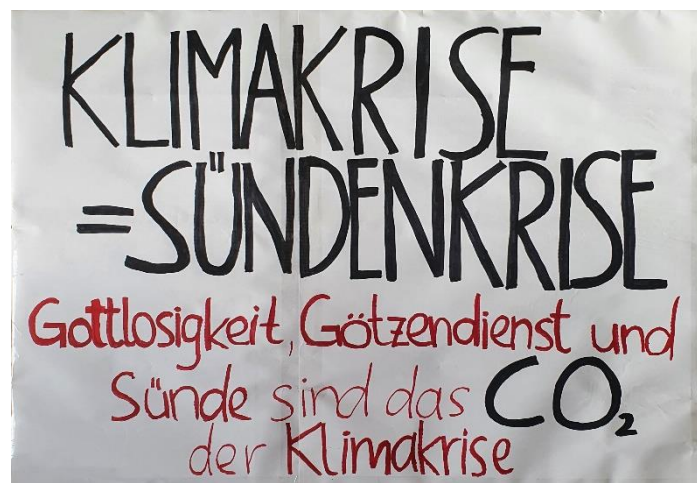 KLIMAKRISE
=SÜNDENKRISE
Gottlosigkeit, Götzendienst und
Sünde sind das CO₂
der Klimakrise